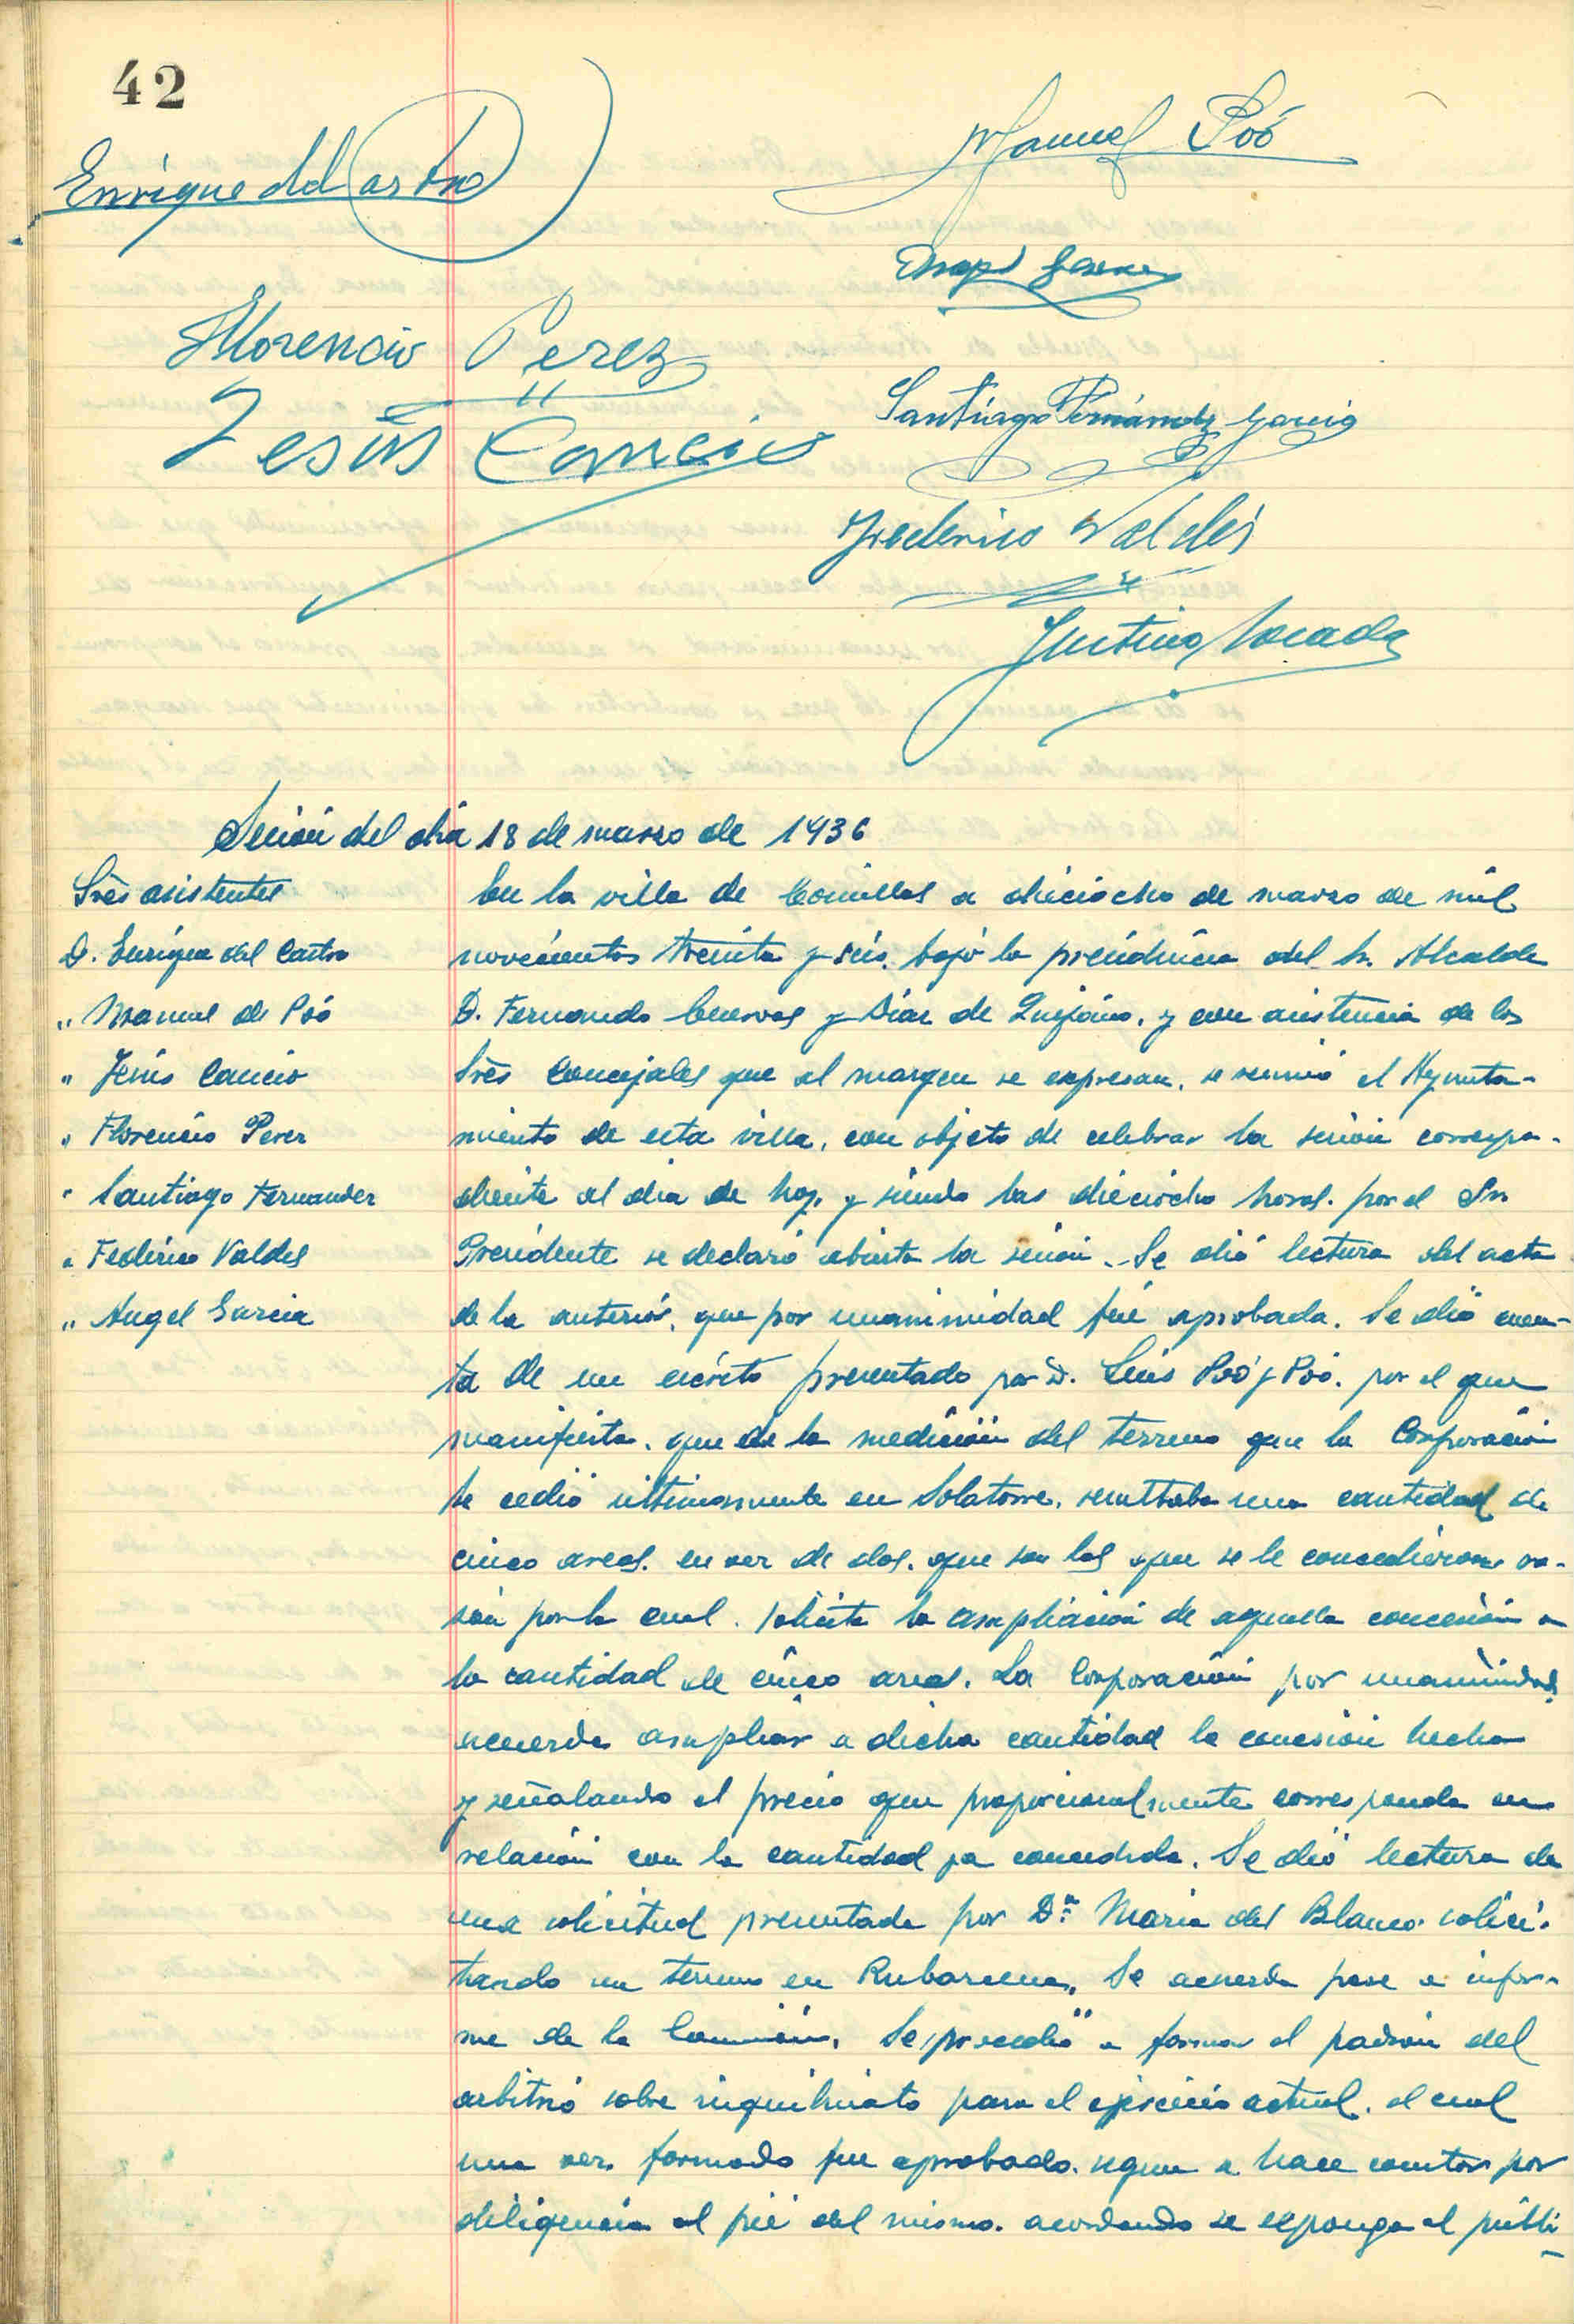 42
Enrique del Castro
Manuel Poó
Angel Garcia
Florencio Perez
Santiago Fernández Garcia
Jesús Cancio
Frederico Valdés
Justino
Sesión del dia 18 de marzo de 1936
Srës asistentes
D. Enrique del Castro
" Manuel de Poó
" Jesús Cancio
" Florencio Perez
" Santiago Fernandez
" Federico Valdes
" Angel Garcia
En la villa de Comillas a dieciocho de marzo de mil
novecientos treinta y seis, bajo la presidencia del Sr. Alcalde
D. Fernando Cuevas y Diaz de Quijano, y con asistencia de los
Srës Concejales que al margen se expresan, se reunió el Ayunta-
miento de esta villa, con objeto de celebrar la sesión correspon-
diente al dia de hoy, y siendo las dieciocho horas, por el Sr.
Presidente se declaró abierta la sesión. Se dió lectura del acta
de la anterior, que por unanimidad fué aprobada. Se dió cuen-
ta de un escrito presentado por D. Luis Poó y Poó, por el que
manifiesta, que de la medición del terreno que la Corporación
le cedió ultimamente en Solatorre, resultaba una cantidad de
cinco areas, en vez de dos, que son las que se le concedieron ra-
zón por la cual, solicita la ampliación de aquella concesión a
la cantidad de cinco areas. La Corporación por unanimidad
acuerda ampliar a dicha cantidad la concesión hecha
y señalando el precio que proporcionalmente corresponda en
relación con la cantidad ya concedida. Se dió lectura de
una solicitud presentada por Dª Maria del Blanco solici-
tando un terreno en Rubarcena, Se acuerda pase a infor-
me de la Comisión. Se procedió a formar el padrón del
arbitrio sobre inquilinato para el ejercicio actual, el cual
una vez formado fue aprobado, segun se hace constar por
diligencia al pié del mismo, acordando se esponga al públi-